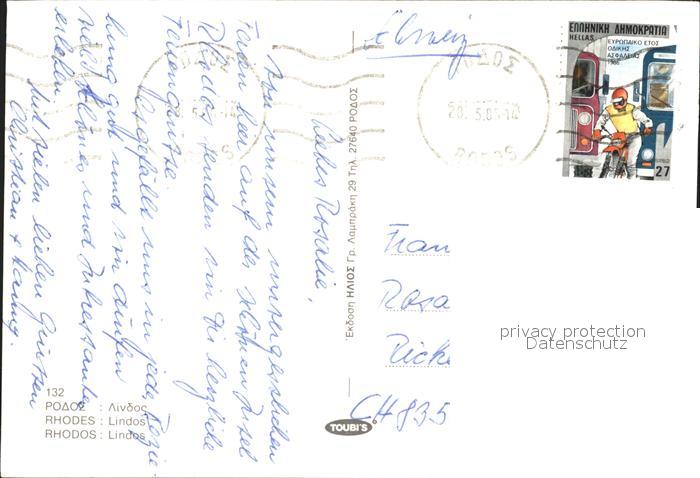 Schweiz
ΕΛΛΗΝΙΚΗ ΔΗΜΟΚΡΑΤΙΑ
HELLAS
ΕΥΡΩΠΑΪΚΟ ΕΤΟΣ
ΟΔΙΚΗΣ
ΑΣΦΑΛΕΙΑΣ
1986
27
ΡΟΔΟΣ
RODOS
Liebes Rosalie,
Von unsern unvergesslichen
Ferien hier auf der schönen Insel
Rhodos senden wir Dir herzliche
Feriengrüsse.
Es gefällt uns in jeder Bezie-
hung gut und wir dürfen
viel schönes und Interessantes
erleben.
Mit vielen lieben Grüssen
Christian +
Έκδοση ΗΛΙΟΣ Γρ. Λαμπράκη 29 Τηλ. 27640 ΡΟΔΟΣ
Frau
Rosa
Rick
CH 835
privacy protection
Datenschutz
132
ΡΟΔΟΣ : Λίνδος
RHODES : Lindos
RHODOS : Lindos
TOUBI'S